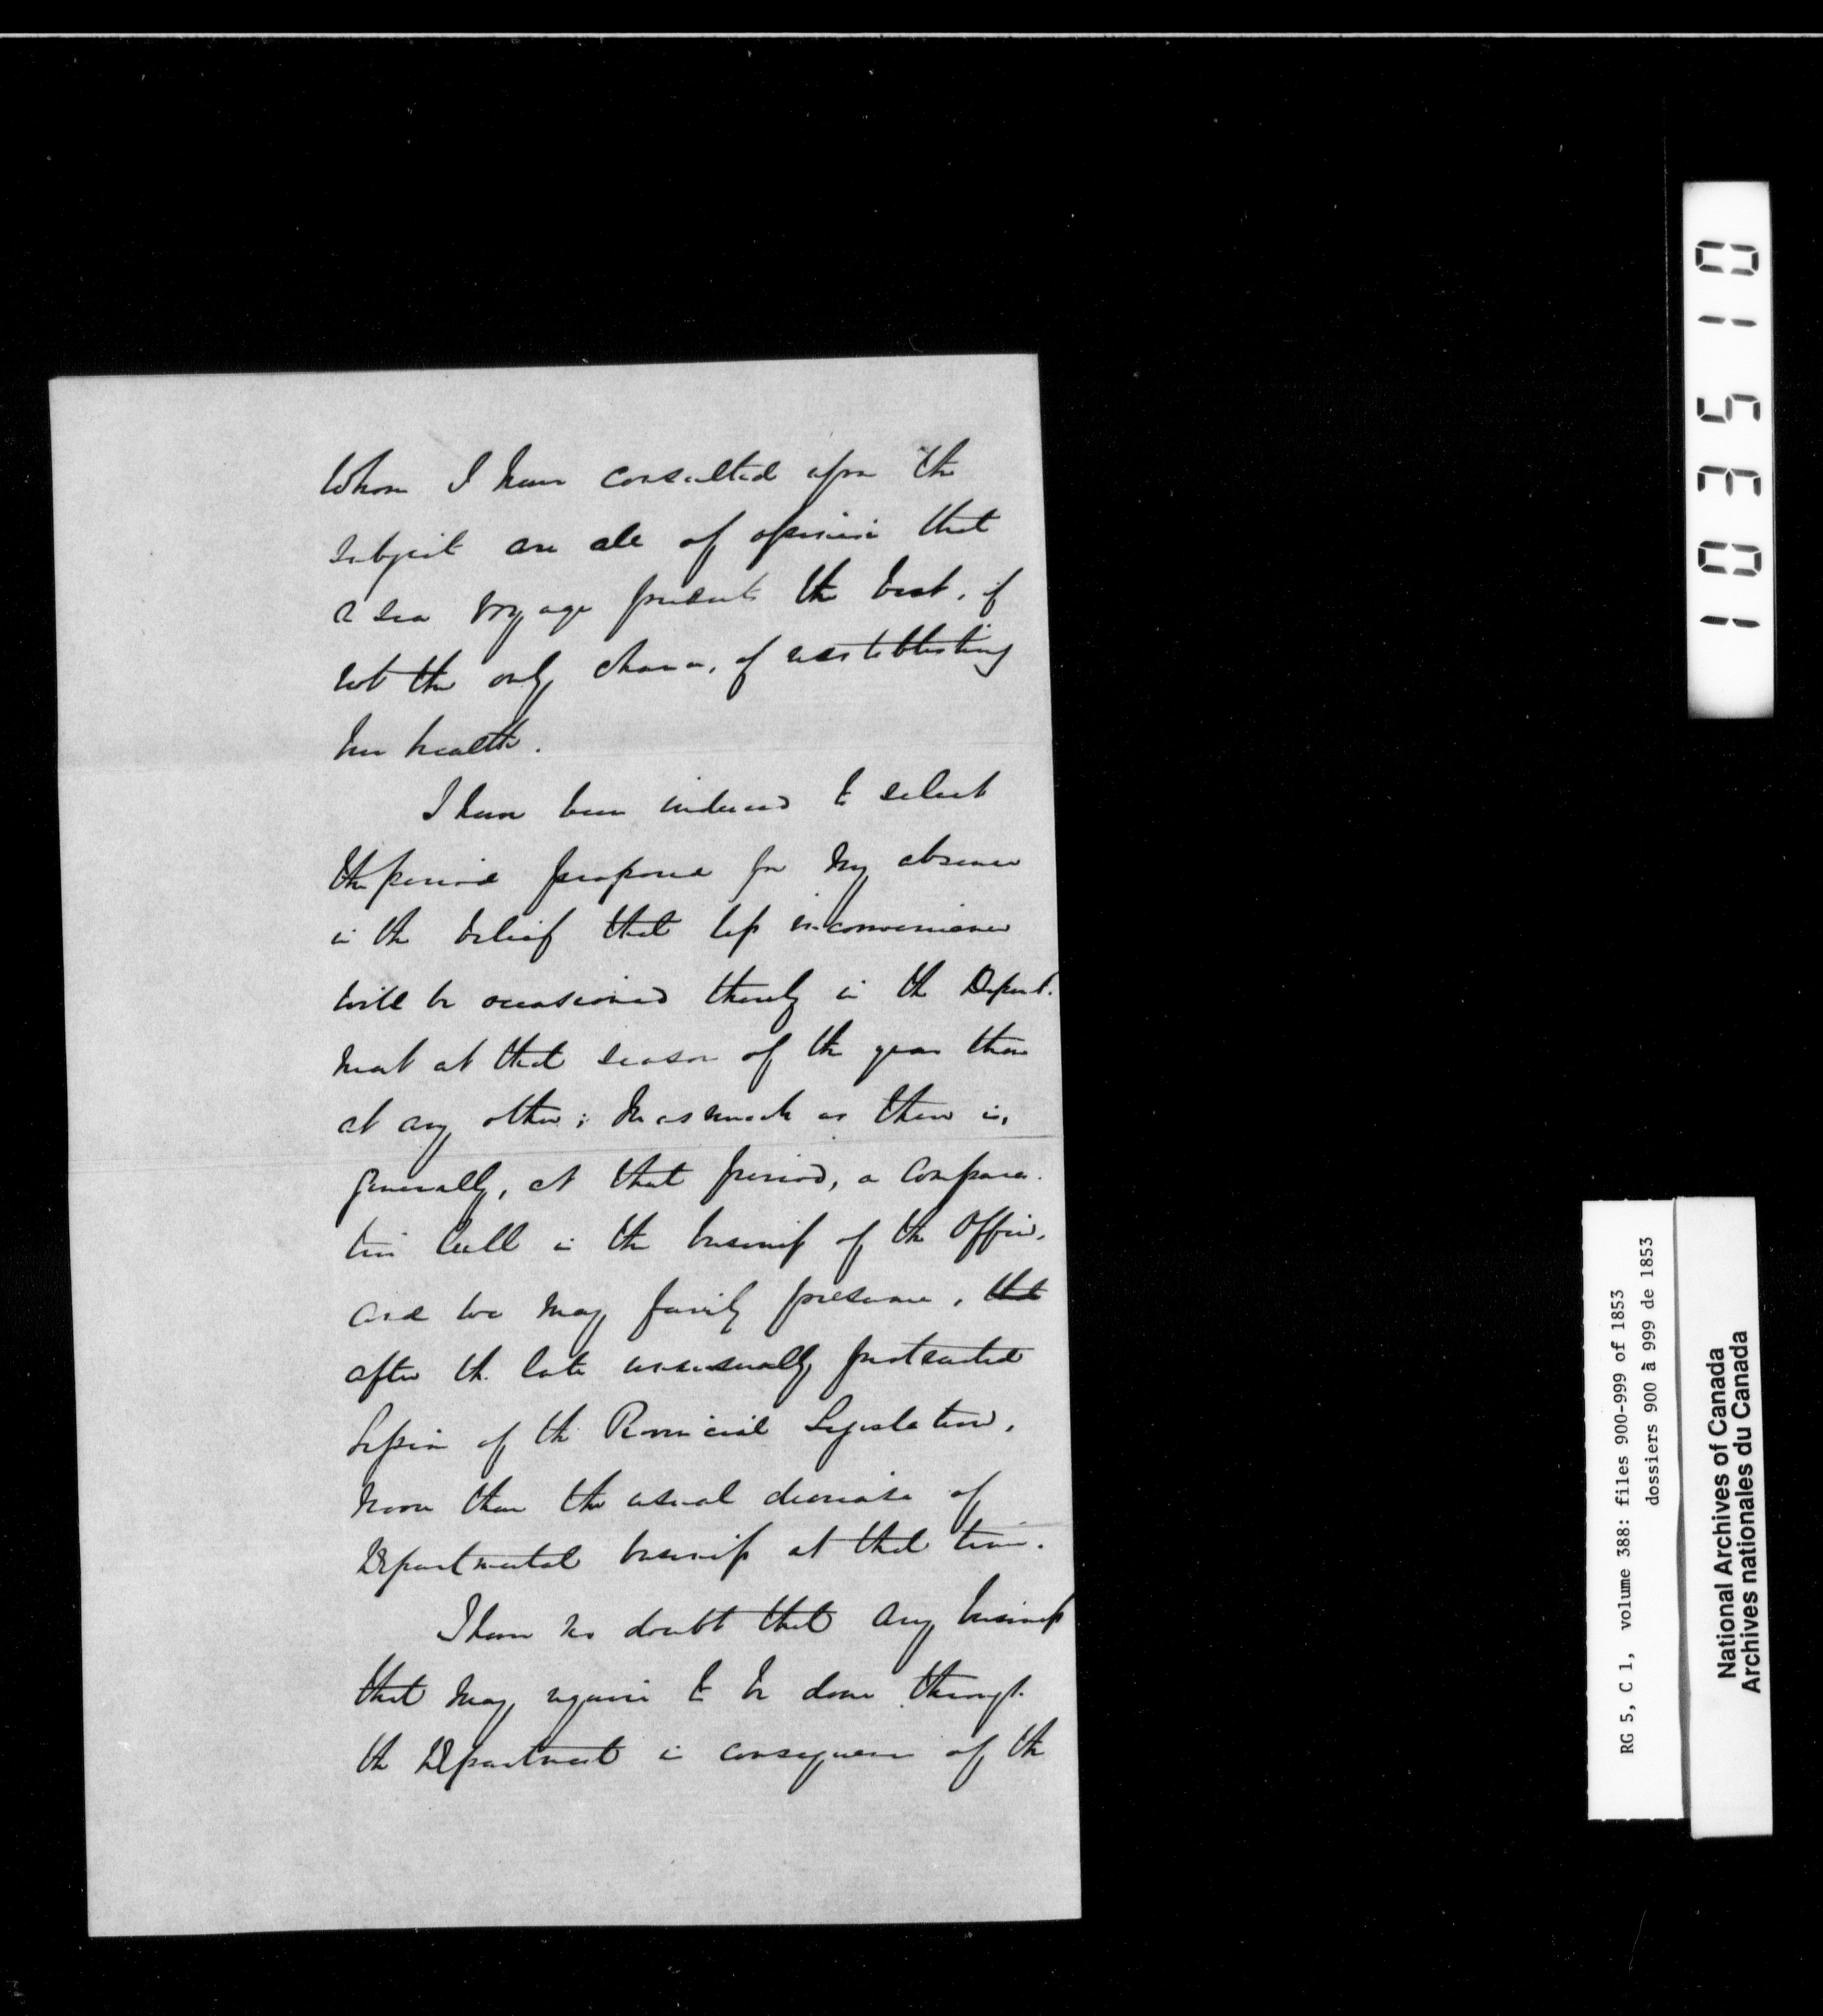 whom I have consulted upon the
subject are all of opinion that
a sea voyage presents the best, if
not the only chance, of reestablishing
her health.
I have been induced to select
the period proposed for my absence
in the belief that less inconvenience
will be occasioned thereby in the Depart-
ment at that season of the year than
at any other; inasmuch as there is,
generally, at that period, a compara-
tive lull in the business of the Office,
and we may fairly presume, that
after the late unusually protracted
Session of the Provincial Legislature,
more than the usual decrease of
Departmental business at that time.
I have no doubt that any business
that may require to be done through
the Department in consequence of the
103510
RG 5, C 1, volume 388: files 900-999 of 1853
dossiers 900 à 999 de 1853
National Archives of Canada
Archives nationales du Canada